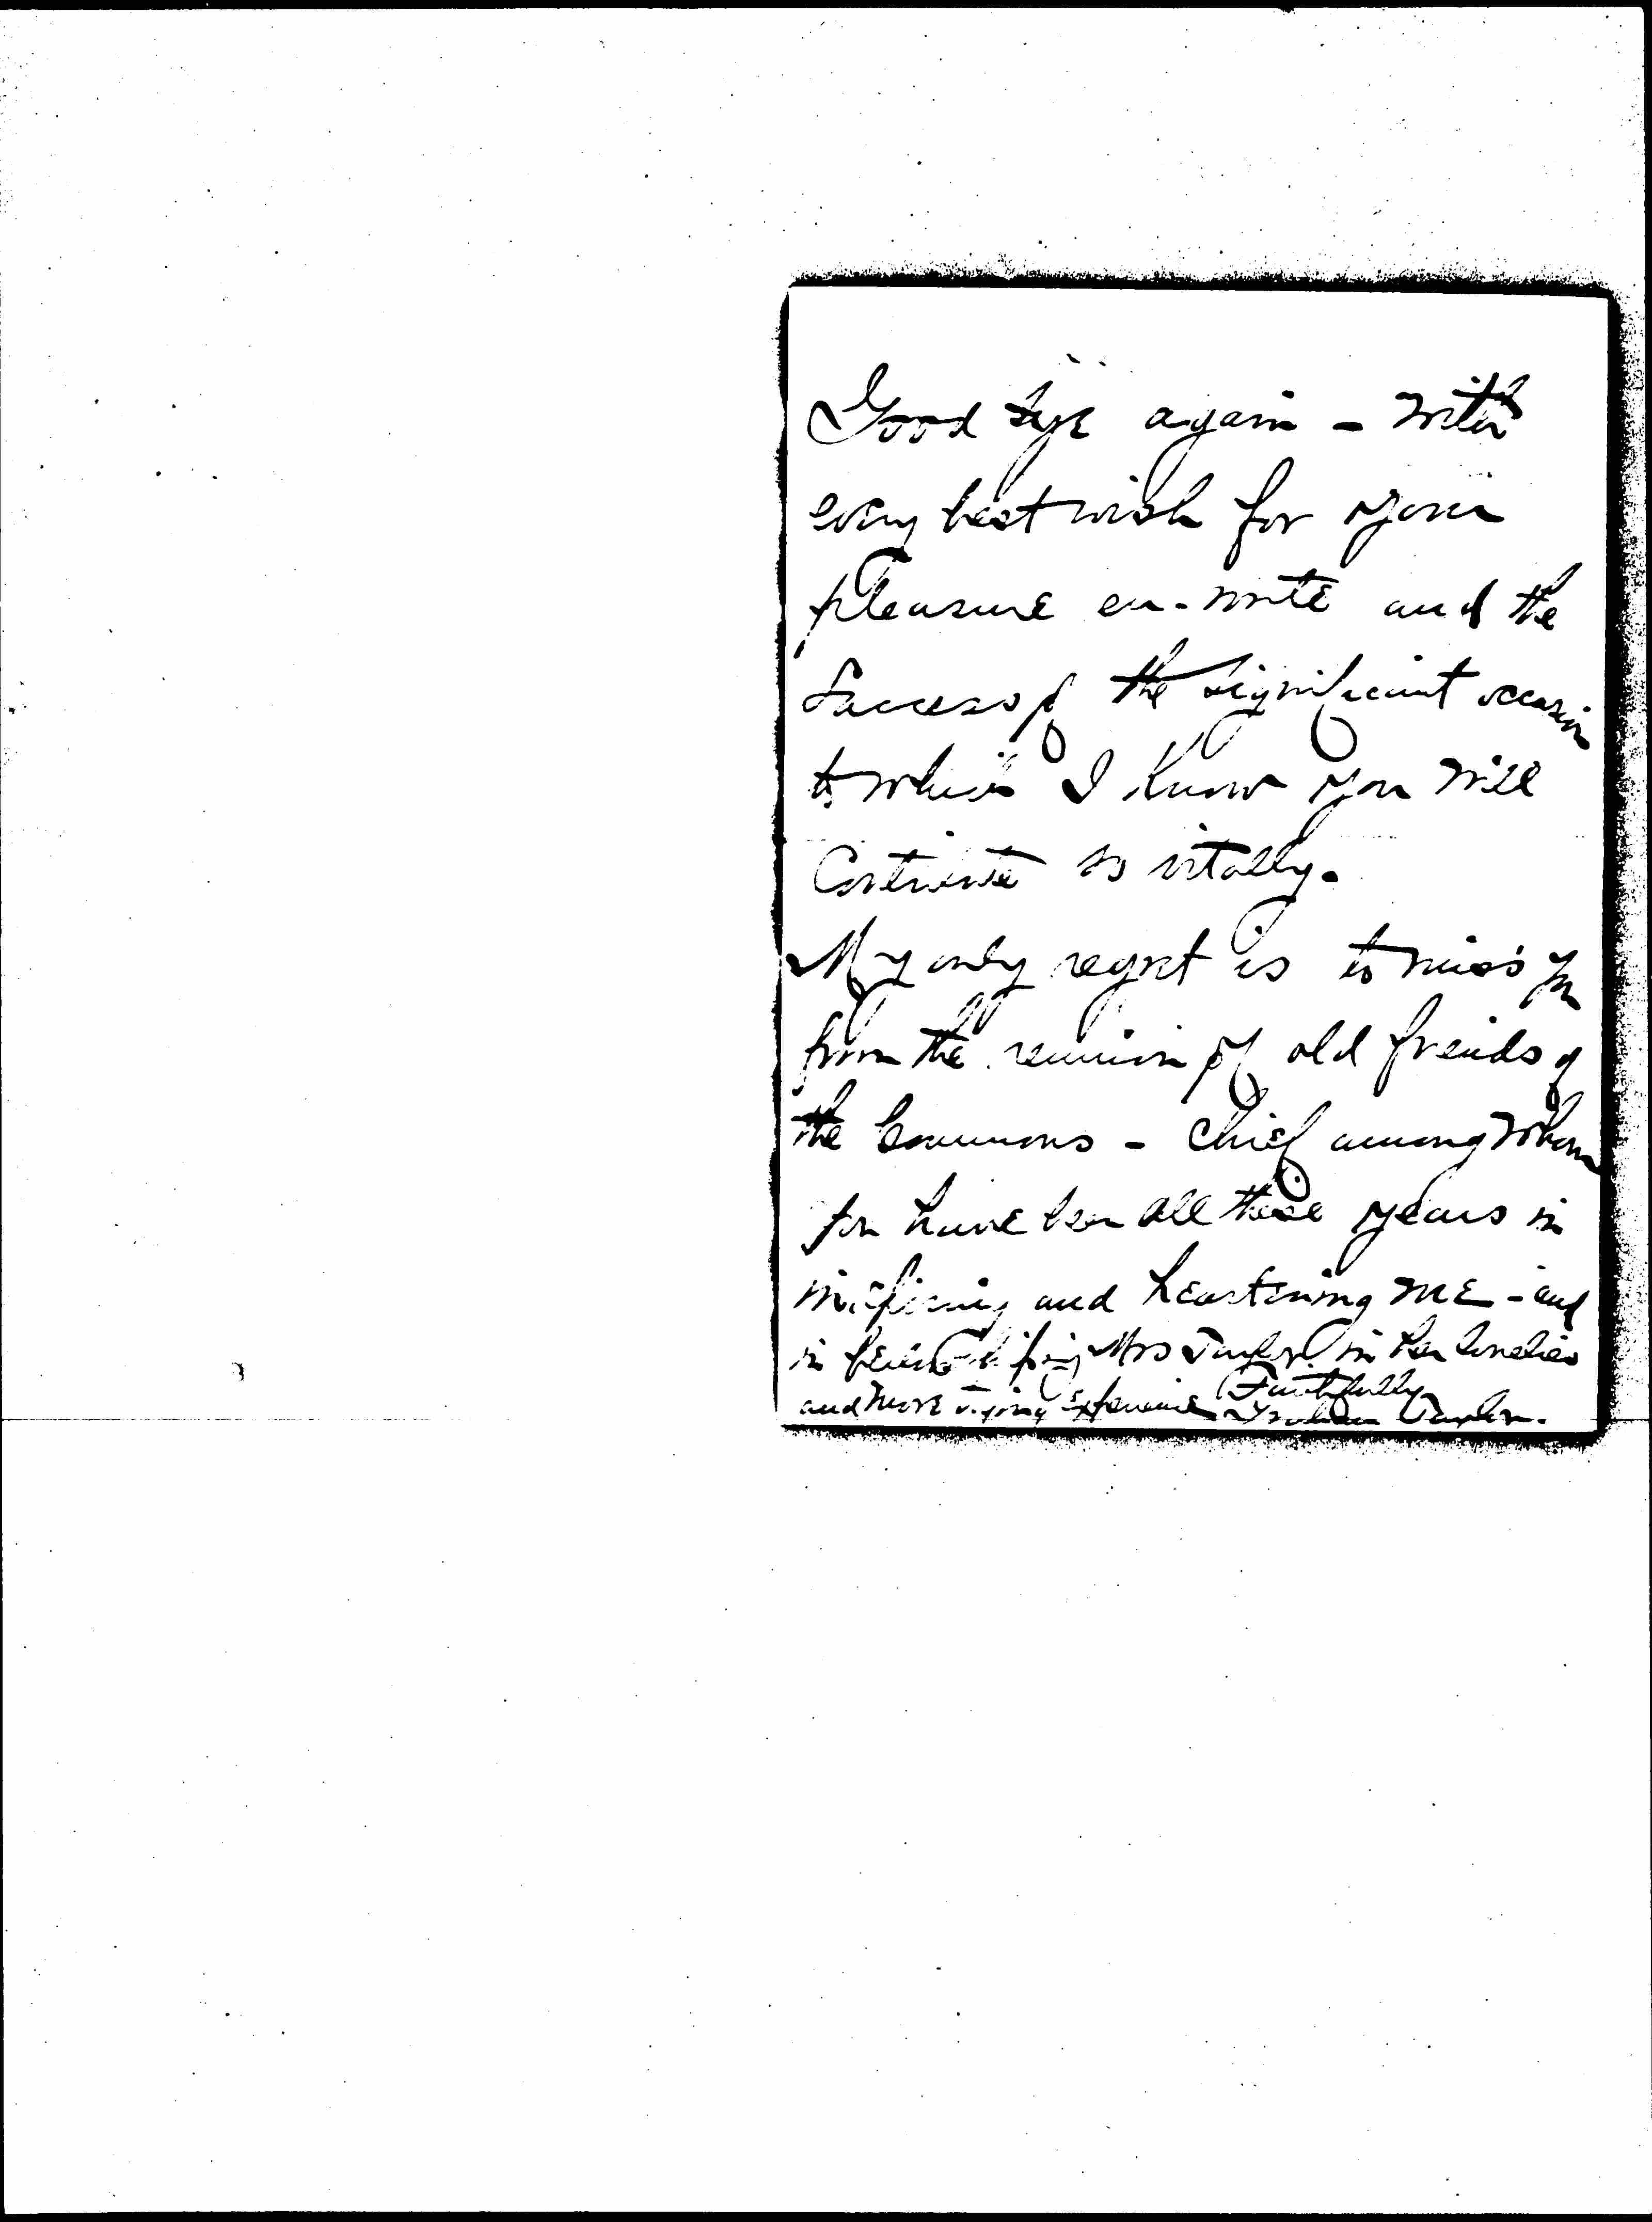 Good bye again - with
every best wish for your
pleasure en-route and the
success of the significant occasion
to which I know you will
contribute so vitally.
My only regret is to miss you
from the reunion of old friends of
the Commons - chief among whom
you have been all these years in
inspiring and heartening me - and
in Mrs Taylor in her lonelier
and more trying experience Faithfully
Graham Taylor.